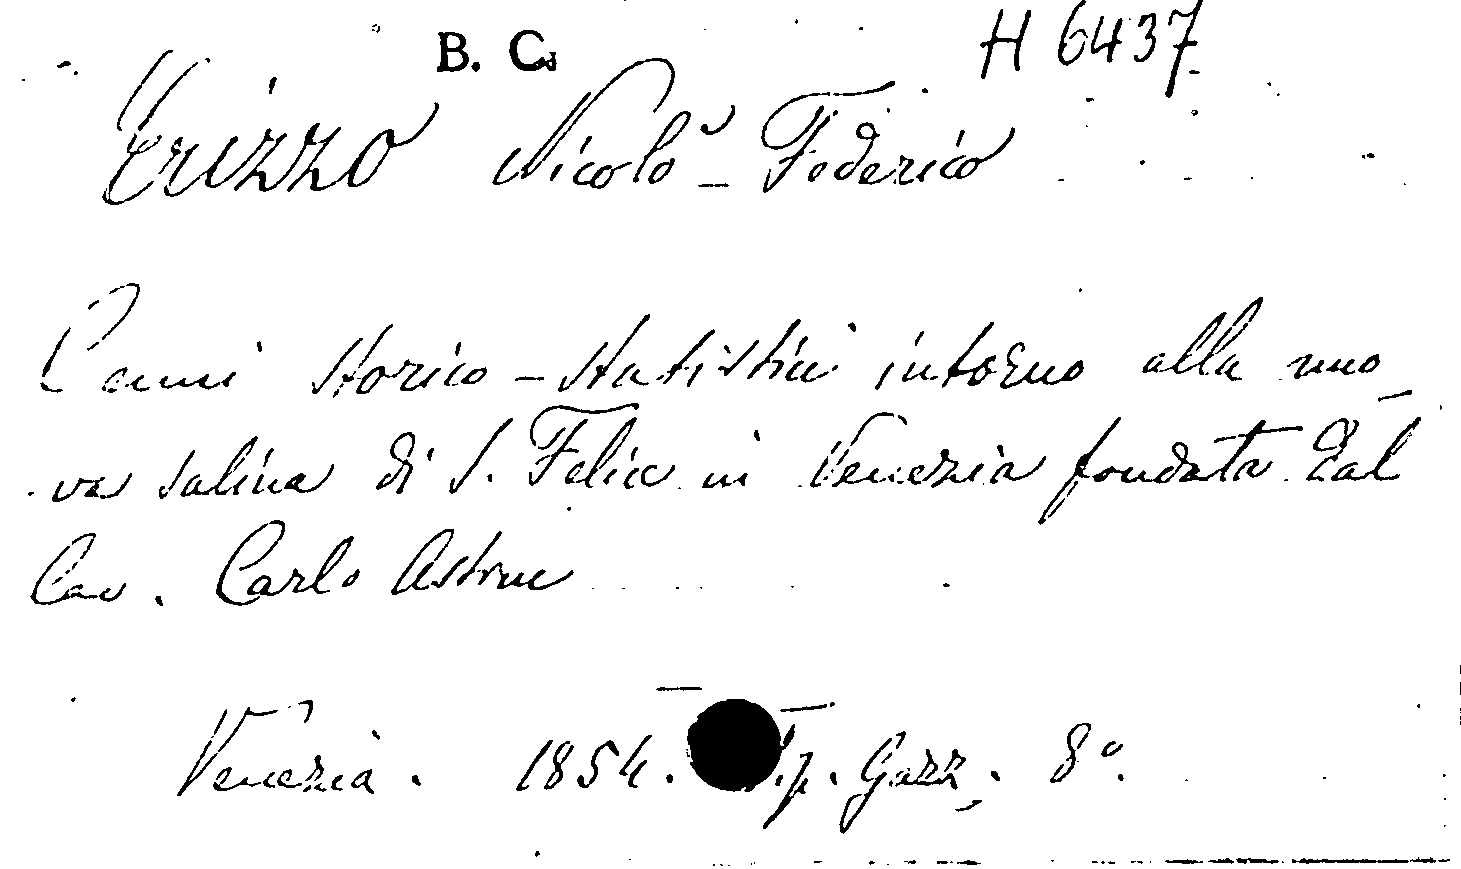 B. C.
H 6437
Erizzo Nicolò - Federico
Cenni storico - statistici intorno alla nuo_
va salina di S. Felice in Venezia fondata dal
Cav. Carlo Astruc
Venezia. 1854. Tip. Gazz. 8º.